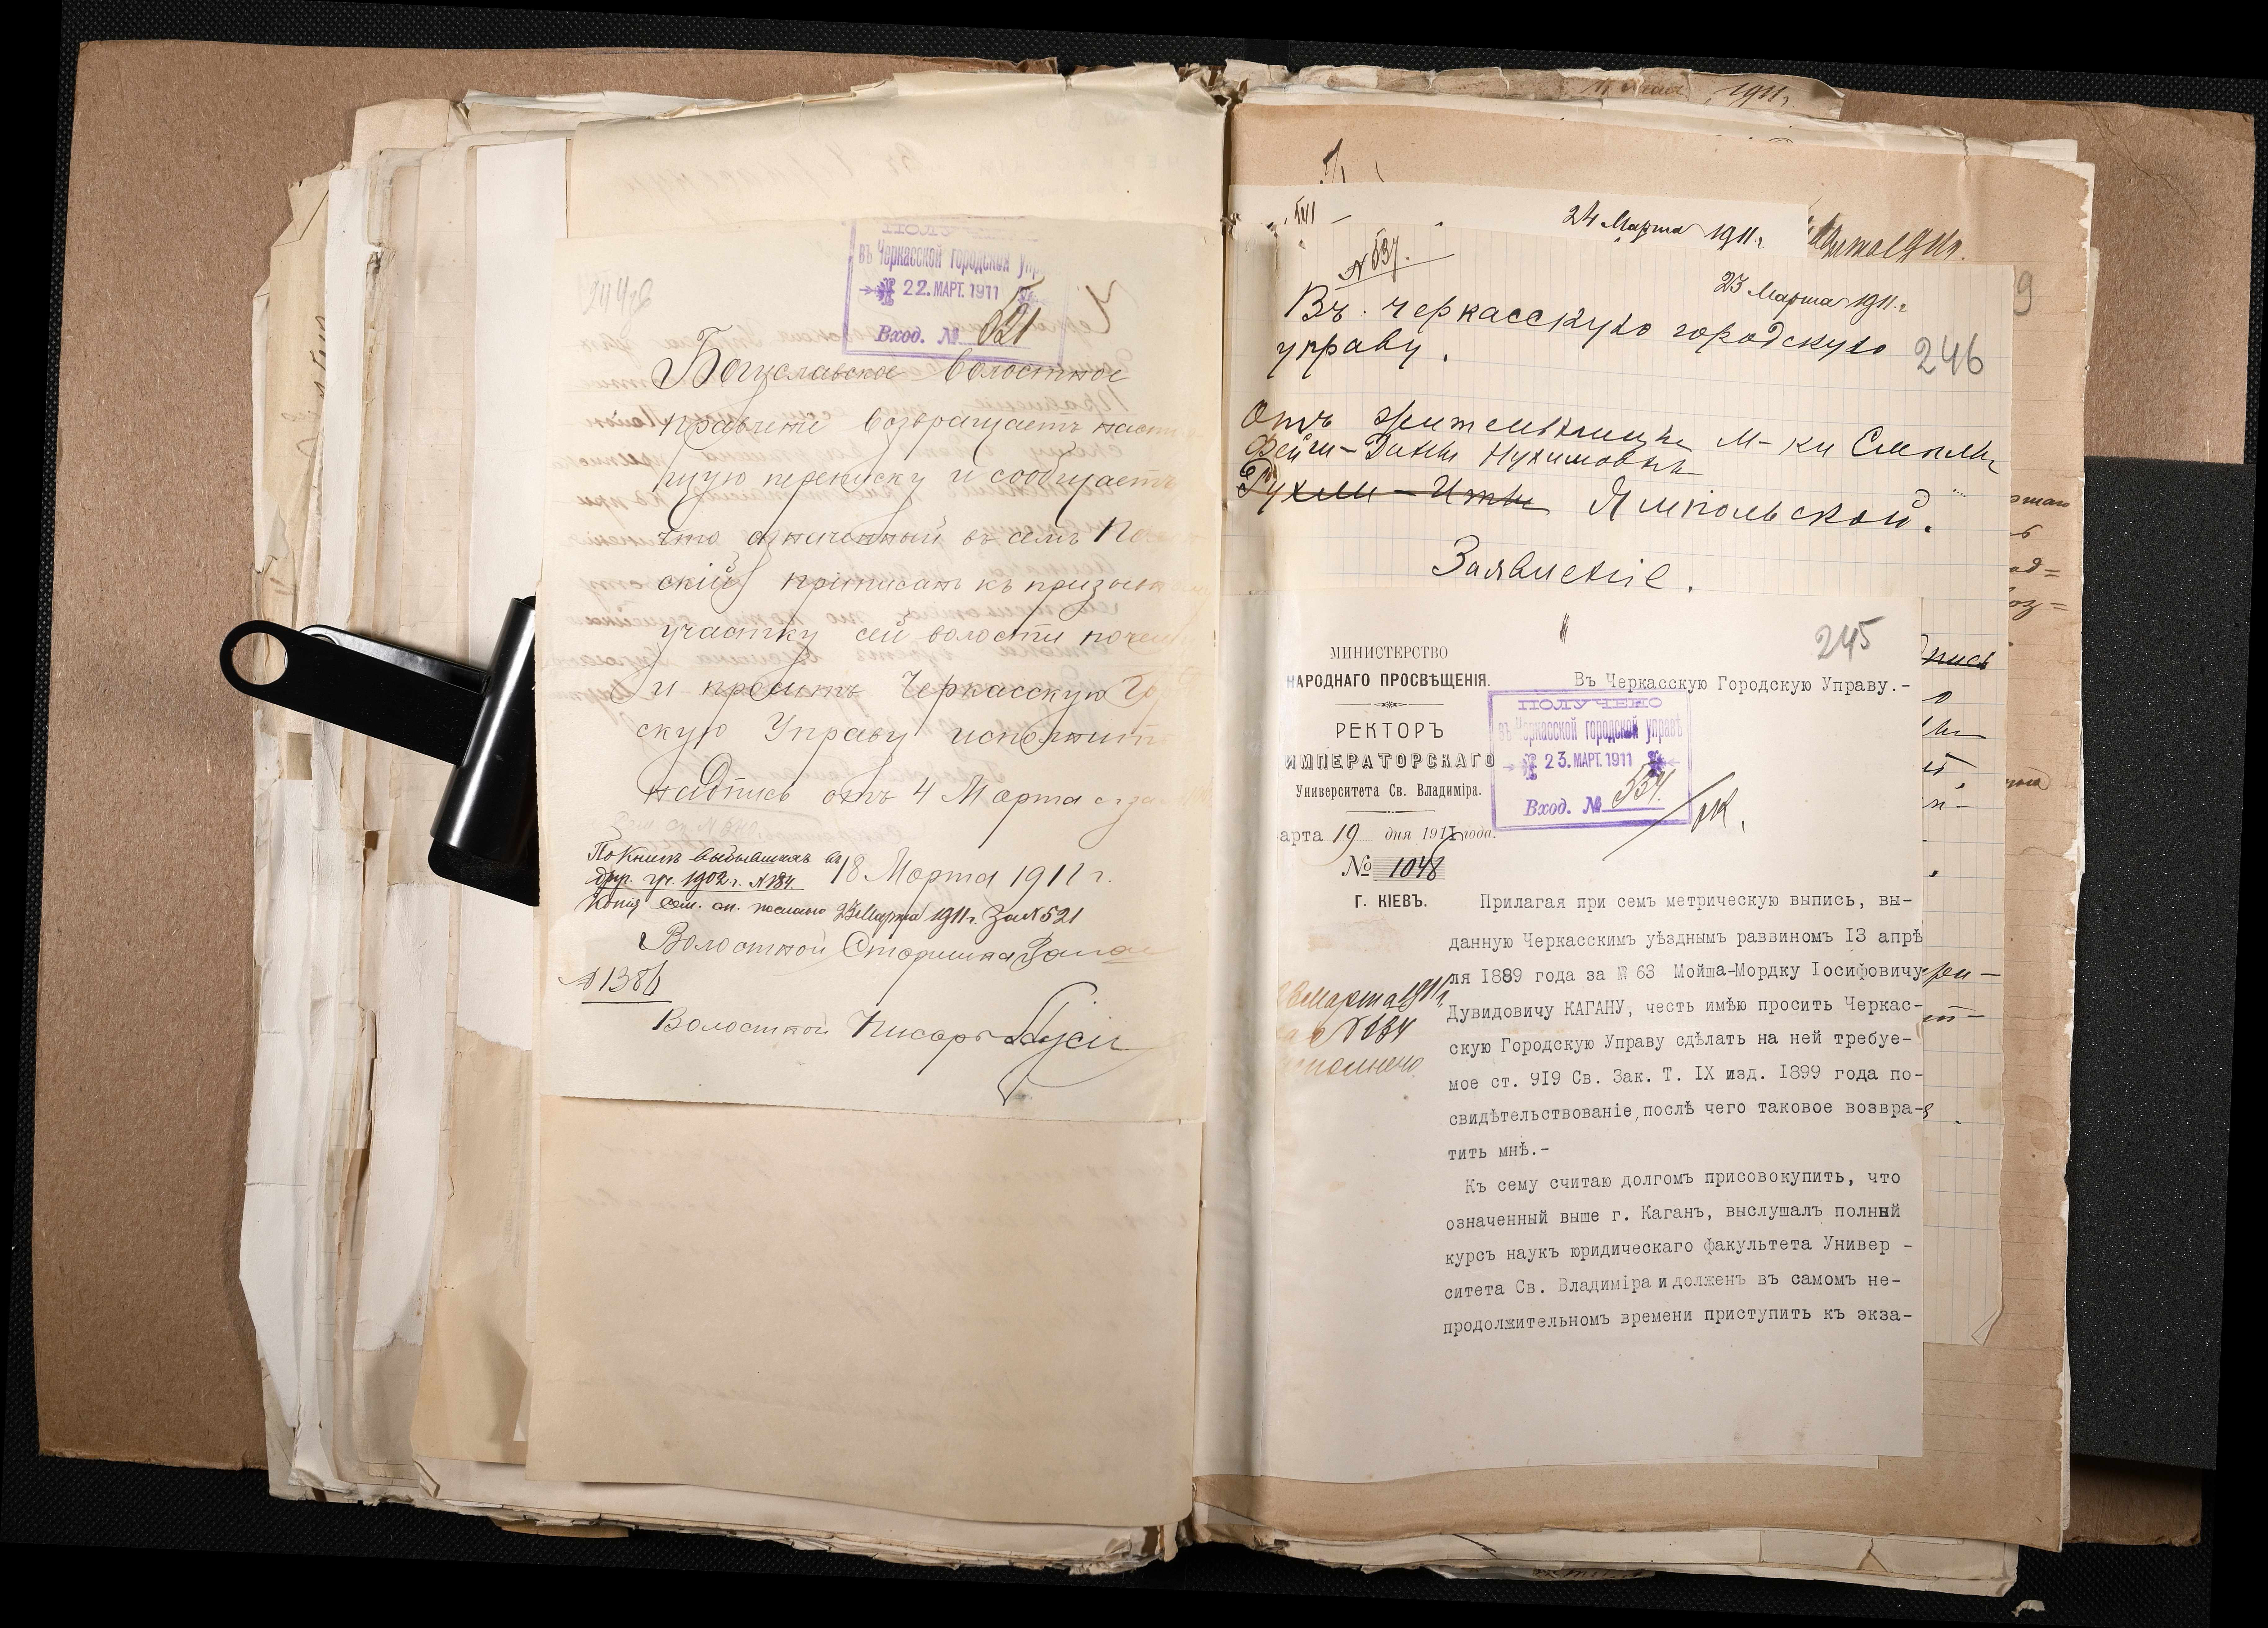 ПОЛУЧЕНО
въ Черкасской городской упр
22. МАРТ. 1911
Вход. № 521
Богуславское волостное
правленіе возвращаетъ насто
щую переписку и сообщаетъ
что означенный въ семъ
скій приписанъ къ призывному
участку сей волости почему
и проситъ Черкасскую Го
скую Управу исполнить
надпись отъ 4 Марта с. года
18 Марта 1911 г.
По книгѣ выбывшихъ въ
др. уч. 1902 г. № 184.
Копія сем. сп. послана 23 Марта 1911 г. За № 521
Волостной Старшина
№ 1386
Волостной Писарь
1911 г.
24 Марта 1911 г.
№ 537.
23 Марта 1911 г.
Въ черкасскую городскую
управу.
246
9
Отъ жительницы м-ка Смѣлы
Фейги-Дины Нухимовны
Рухли-Итты Ямпольской.
Заявленіе.
245
МИНИСТЕРСТВО
НАРОДНАГО ПРОСВѢЩЕНІЯ.
РЕКТОРЪ
ИМПЕРАТОРСКАГО
Университета Св. Владиміра.
арта 19 дня 1911 года.
№ 1048
Г. КІЕВЪ.
Въ Черкасскую Городскую Управу.-
ПОЛУЧЕНО
въ Черкасской городской управѣ
23. МАРТ. 1911
Вход. № 534.
Прилагая при семъ метрическую выпись, вы-
данную Черкасскимъ уѣзднымъ раввиномъ 13 апрѣ
ля 1889 года за № 63 Мойша-Мордку Іосифовичу
Дувидовичу КАГАНУ, честь имѣю просить Черкас-
скую Городскую Управу сдѣлать на ней требуе-
мое ст. 919 Св. Зак. Т. IX изд. 1899 года по-
свидѣтельствованіе, послѣ чего таковое возвра-
тить мнѣ.-
Къ сему считаю долгомъ присовокупить, что
означенный выше г. Каганъ, выслушалъ полный
курсъ наукъ юридическаго факультета Универ -
ситета Св. Владиміра и долженъ въ самомъ не-
продолжительномъ времени приступить къ экза-
Марта 1911 г.
№ 534
исполнено